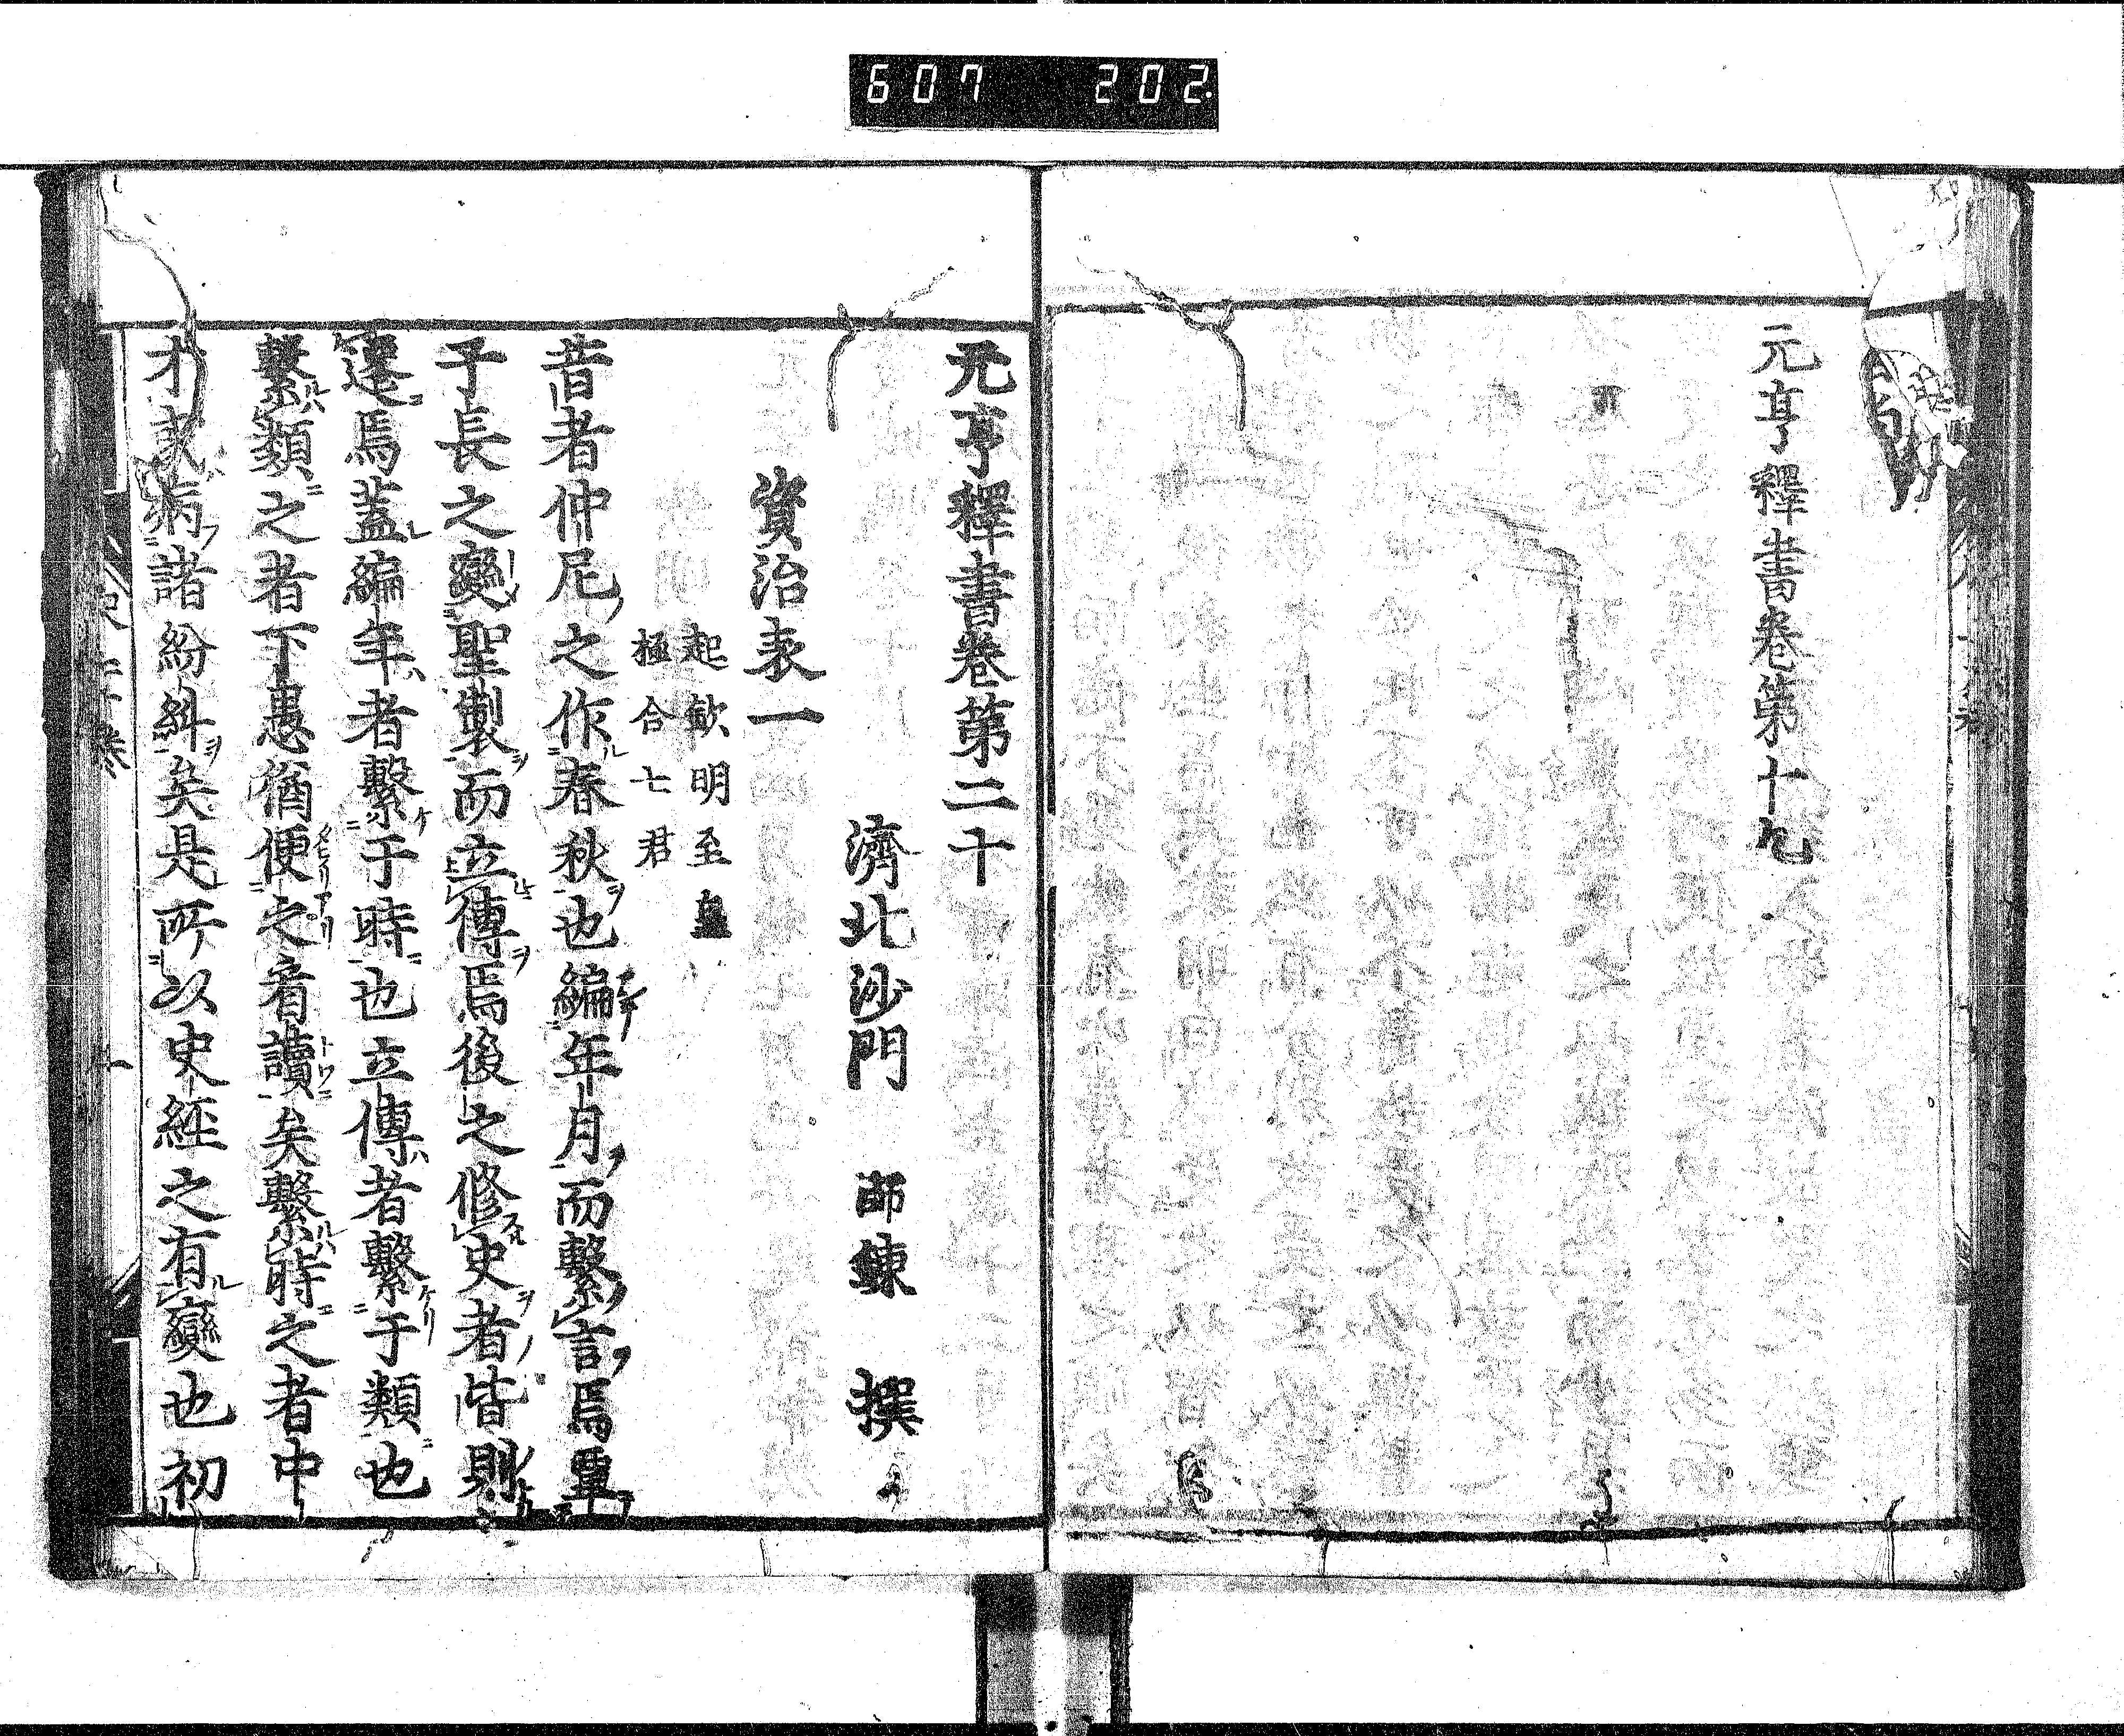 607 202
元亨釋書卷第十九
元亨釋書卷第二十
濟北沙門 師錬 撰
資治表一
起欽明至皇
極合七君
昔者仲尼之作春秋也編年月而繫言焉至
子長之變聖製而立傳焉後之修史者皆則
遷焉蓋編年者繫于時也立傳者繫于類也
繫類之者下愚猶便之看讀矣繫時之者中
才或病諸紛糾矣是所以史經之有變也初